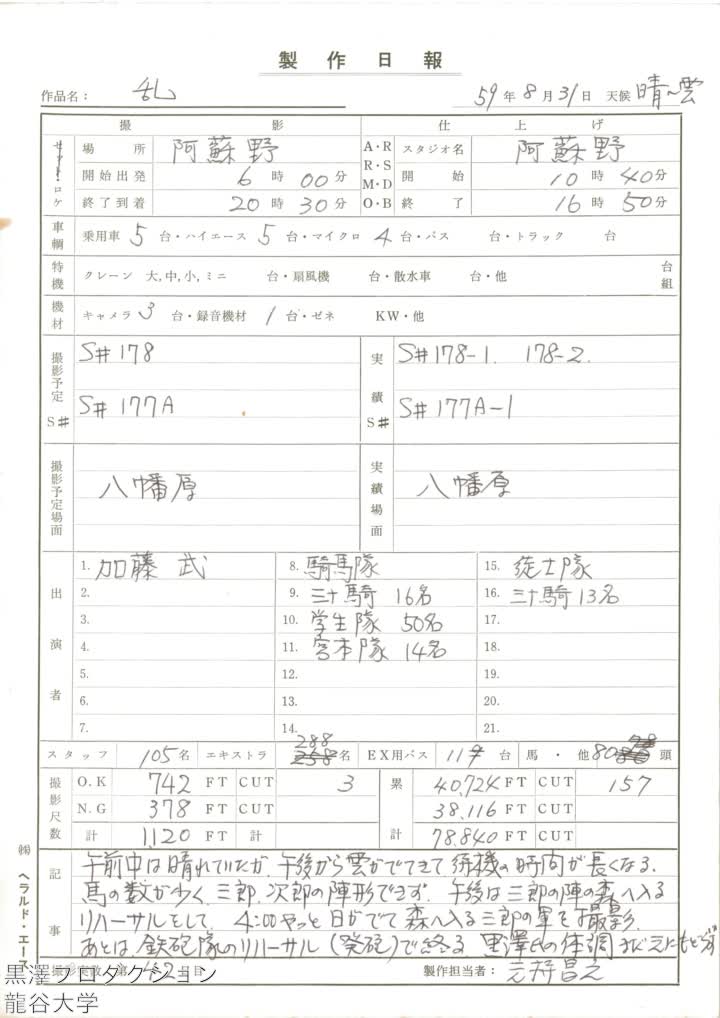 製作日報
作品名： 乱 59年8月31日 天候 晴～雲
撮影 仕上げ
セット・ロケ 場所 阿蘇野 A・R R・S M・D O・B スタジオ名 阿蘇野
開始出発 6時00分 開始 10時40分
終了到着 20時30分 終了 16時50分
車輌 乗用車 5台・ハイエース 5台・マイクロ 4台・バス 台・トラック 台
特機 クレーン 大,中,小,ミニ 台・扇風機 台・散水車 台・他 台組
機材 キャメラ 3台・録音機材 1台・ゼネ KW・他
撮影予定 S# S#178 実績 S# S#178-1. 178-2.
S#177A S#177A-1
撮影予定場面 八幡原 実績場面 八幡原
出演者 1. 加藤 武 8. 騎馬隊 15. 徒士隊
2. 9. 三十騎 16名 16. 三十騎 13名
3. 10. 学生隊 50名 17.
4. 11. 宮本隊 14名 18.
5. 12. 19.
6. 13. 20.
7. 14. 21.
スタッフ 105名 エキストラ 288名 EX用バス 11台 馬・他 頭
撮影尺数 O.K 742 FT CUT 3 累計 40,724 FT CUT 157
N.G 378 FT CUT 38,116 FT CUT
計 1,120 FT 計 78,840 FT CUT
記事 午前中は晴れていたが、午後から雲がでてきて待機の時間が長くなる.
馬の数が少く、三郎、次郎の陣形できず. 午後は三郎の陣の森へ入る
リハーサルをして、4:00やっと日がでて森へ入る三郎の軍を撮影.
あとは鉄砲隊のリハーサル(発砲)で終る. 黒澤氏の体調まだ元にもどらず
撮影実数 第42日目 製作担当者：
㈱ ヘラルド・エース
黒澤プロダクション
龍谷大学